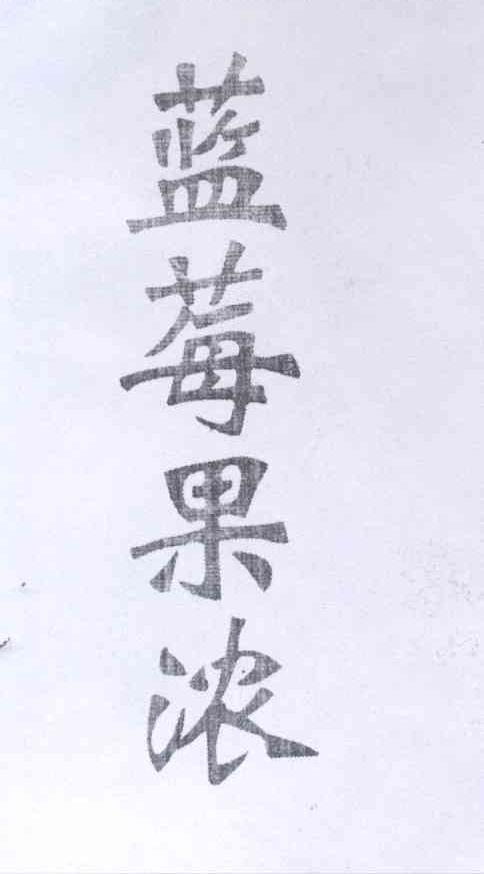 蓝莓果浓